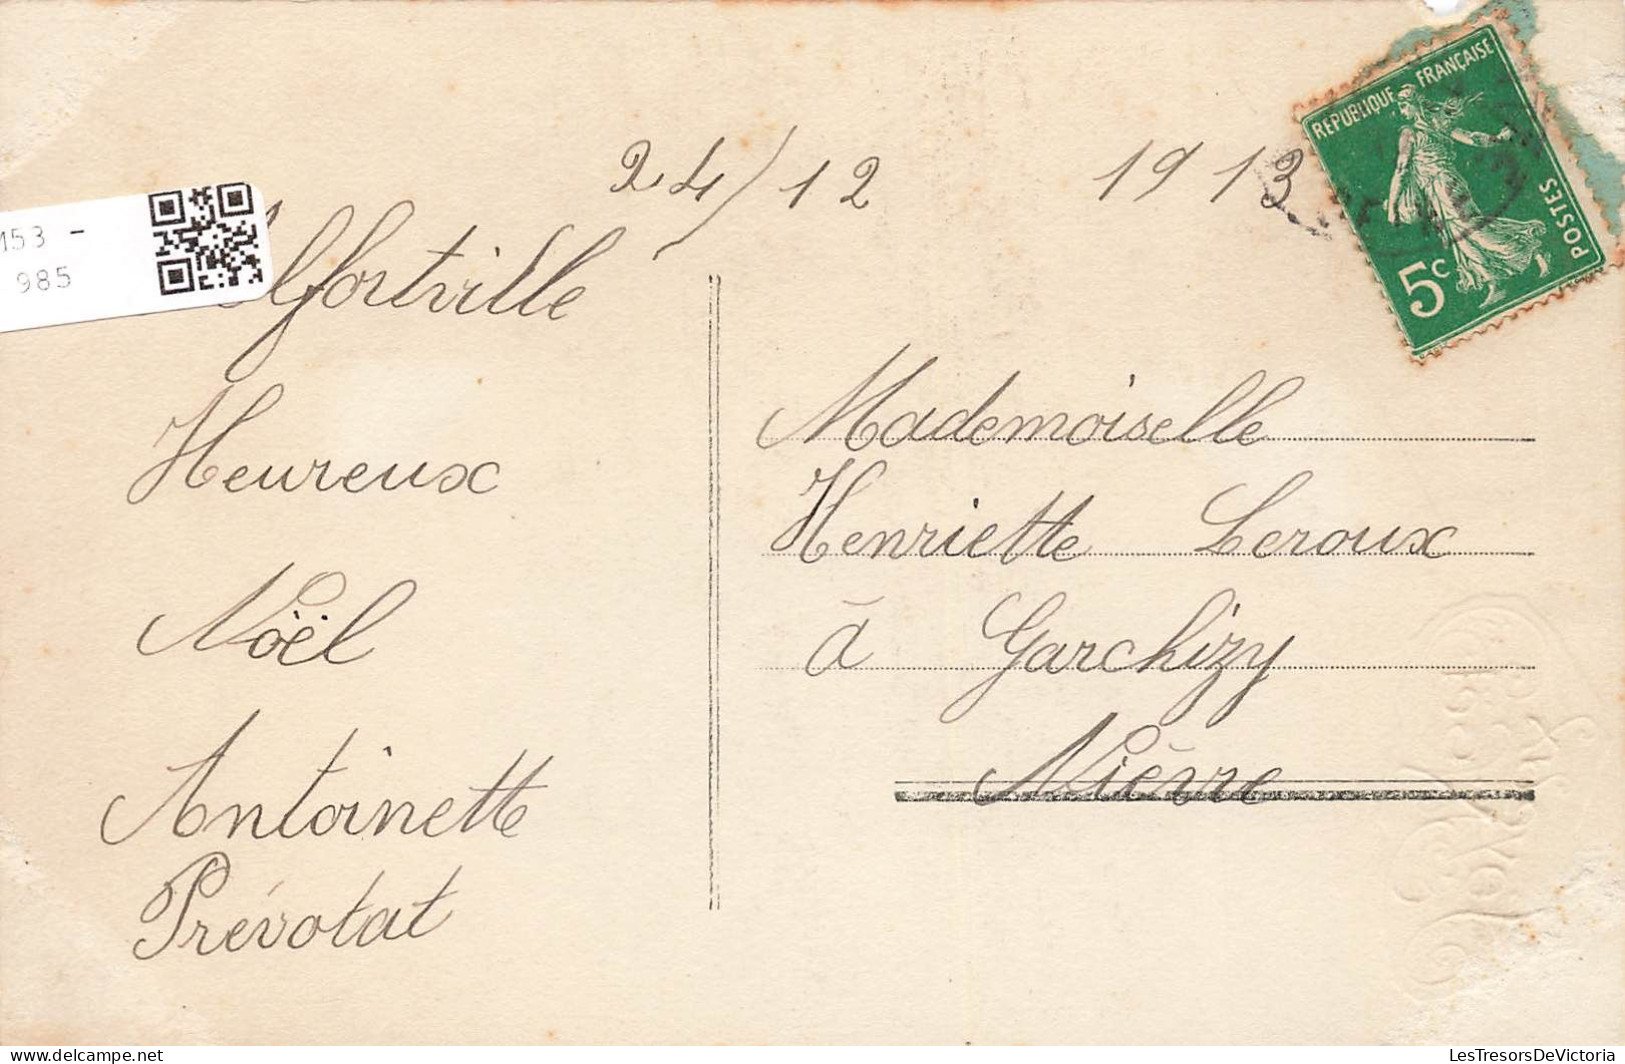 24/12 1913
Alfortville
Heureux
Noël
Antoinette
Prévotat
Mademoiselle
Henriette Leroux
à Garchizy
Nièvre
REPUBLIQUE FRANÇAISE
POSTES
5c
M53 -
985
LesTresorsDeVictoria